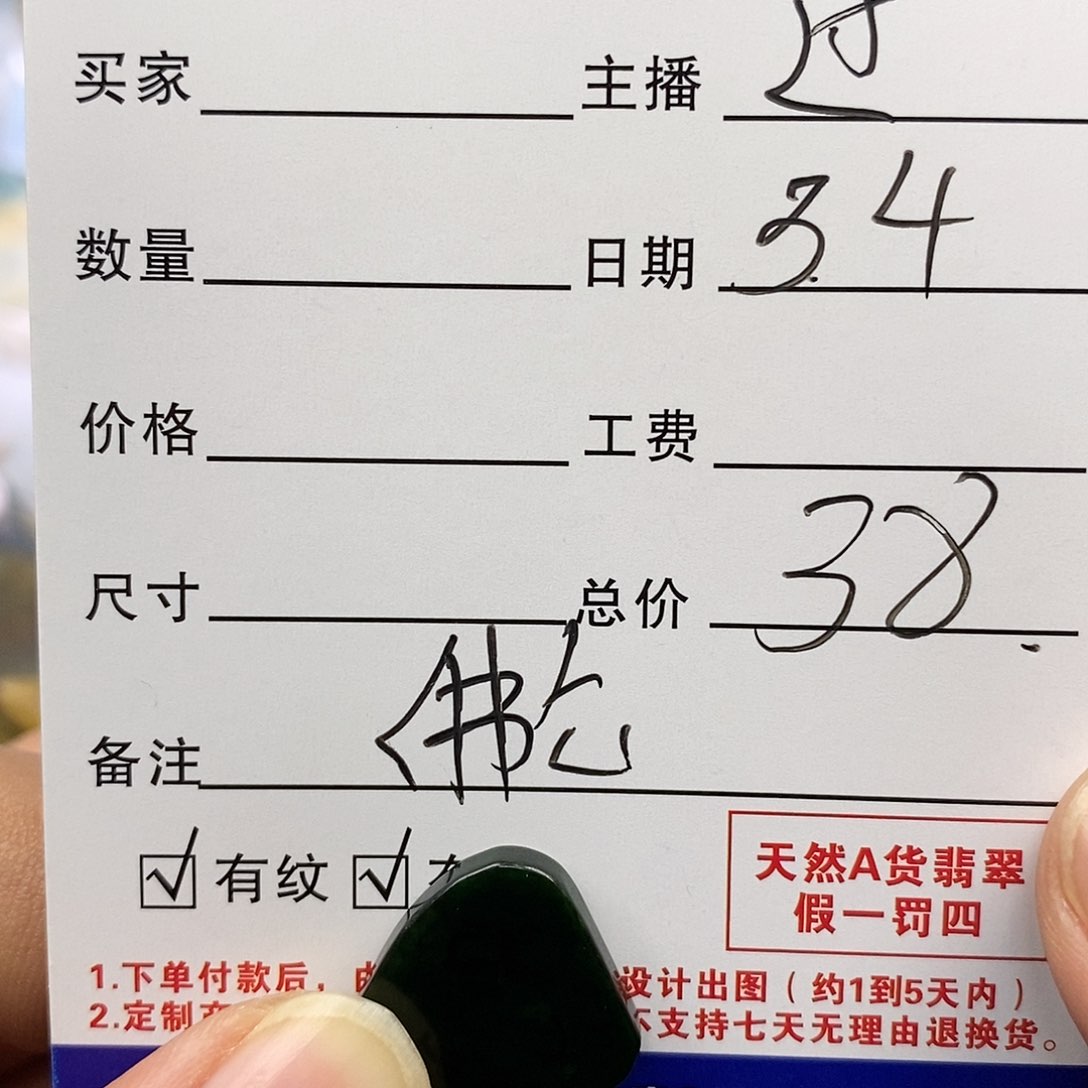 买家 主播
数量 日期 3.4
价格 工费
尺寸 总价 38
备注 佛
有纹
天然A货翡翠
假一罚四
1.下单付款后， 设计出图（约1到5天内）
2.定制 不支持七天无理由退换货。